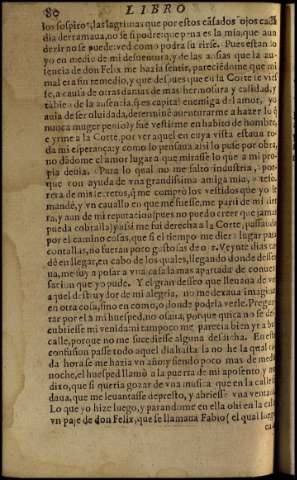 80 LIBRO
los sospiros, las lagrimas que por estos cãsados ojos cada
dia derramaua, no se si podre: que pena es la mia, que aun
dezir no se puede: ved como podra su rirse. Pues estando
yo en medio de mi desuentura, y de las ansias que la au-
sencia de don Felix me hazia sentir, pareciẽdome que mi
mal era sin remedio, y que despues que en la Corte se vies-
se, a causa de otras damas de mas hermosura y calidad, y
tãbien de la ausencia, q̃ es capital enemiga del amor, yo
auia de ser oluidada, determinè auenturarme a hazer lo q̃
nunca muger pensò, y fue vestirme en habito de hombre,
e yrme a la Corte, por ver aquel en cuya vista estaua to-
da mi esperança: y como lo pensaua assi lo puse por obra,
no dãdome el amor lugar a que mirasse lo que a mi pro-
pia deuia. Para lo qual no me faltò industria, por-
que con ayuda de vna grandissima amiga mia, y teso-
rera de mis secretos, q̃ me comprò los vestidos que yo le
mandè, y vn cauallo en que me fuesse, me parti de mi tier-
ra, y aun de mi reputacion (pues no puedo creer que jamas
pueda cobralla) y assi me fui derecha a la Corte, passando
por el camino cosas, que si el tiempo me diera lugar para
contallas, no fueran poco gustosas de oyr. Veynte dias tar
dè en llegar, en cabo de los quales, llegando donde dessea
ua, me fuy a posar a vna casa la mas apartada de conuer
sacion que yo pude. Y el gran desseo que lleuaua de ver
a aquel destruydor de mi alegria, no me dexaua imaginar
en otra cosa, sino en como, o donde podria verle. Pregun
tar por el a mi huesped, no osaua, porque quiça no se des
cubriesse mi venida: ni tampoco me parecia bien yr a bus
calle, porque no me sucediesse alguna desdicha. En esta
confusion passè todo aquel dia hasta la noche, la qual ca
da hora se me hazia vn año: y siendo poco mas de media
noche, el huesped llamò a la puerta de mi aposento, y me
dixo, que si queria gozar de vna musica que en la calle se
daua, que me leuantasse de presto, y abriesse vna ventana
Lo que yo hize luego, y parandome en ella, ohi en la calle
vn paje de don Felix, que se llamaua Fabio (el qual luego